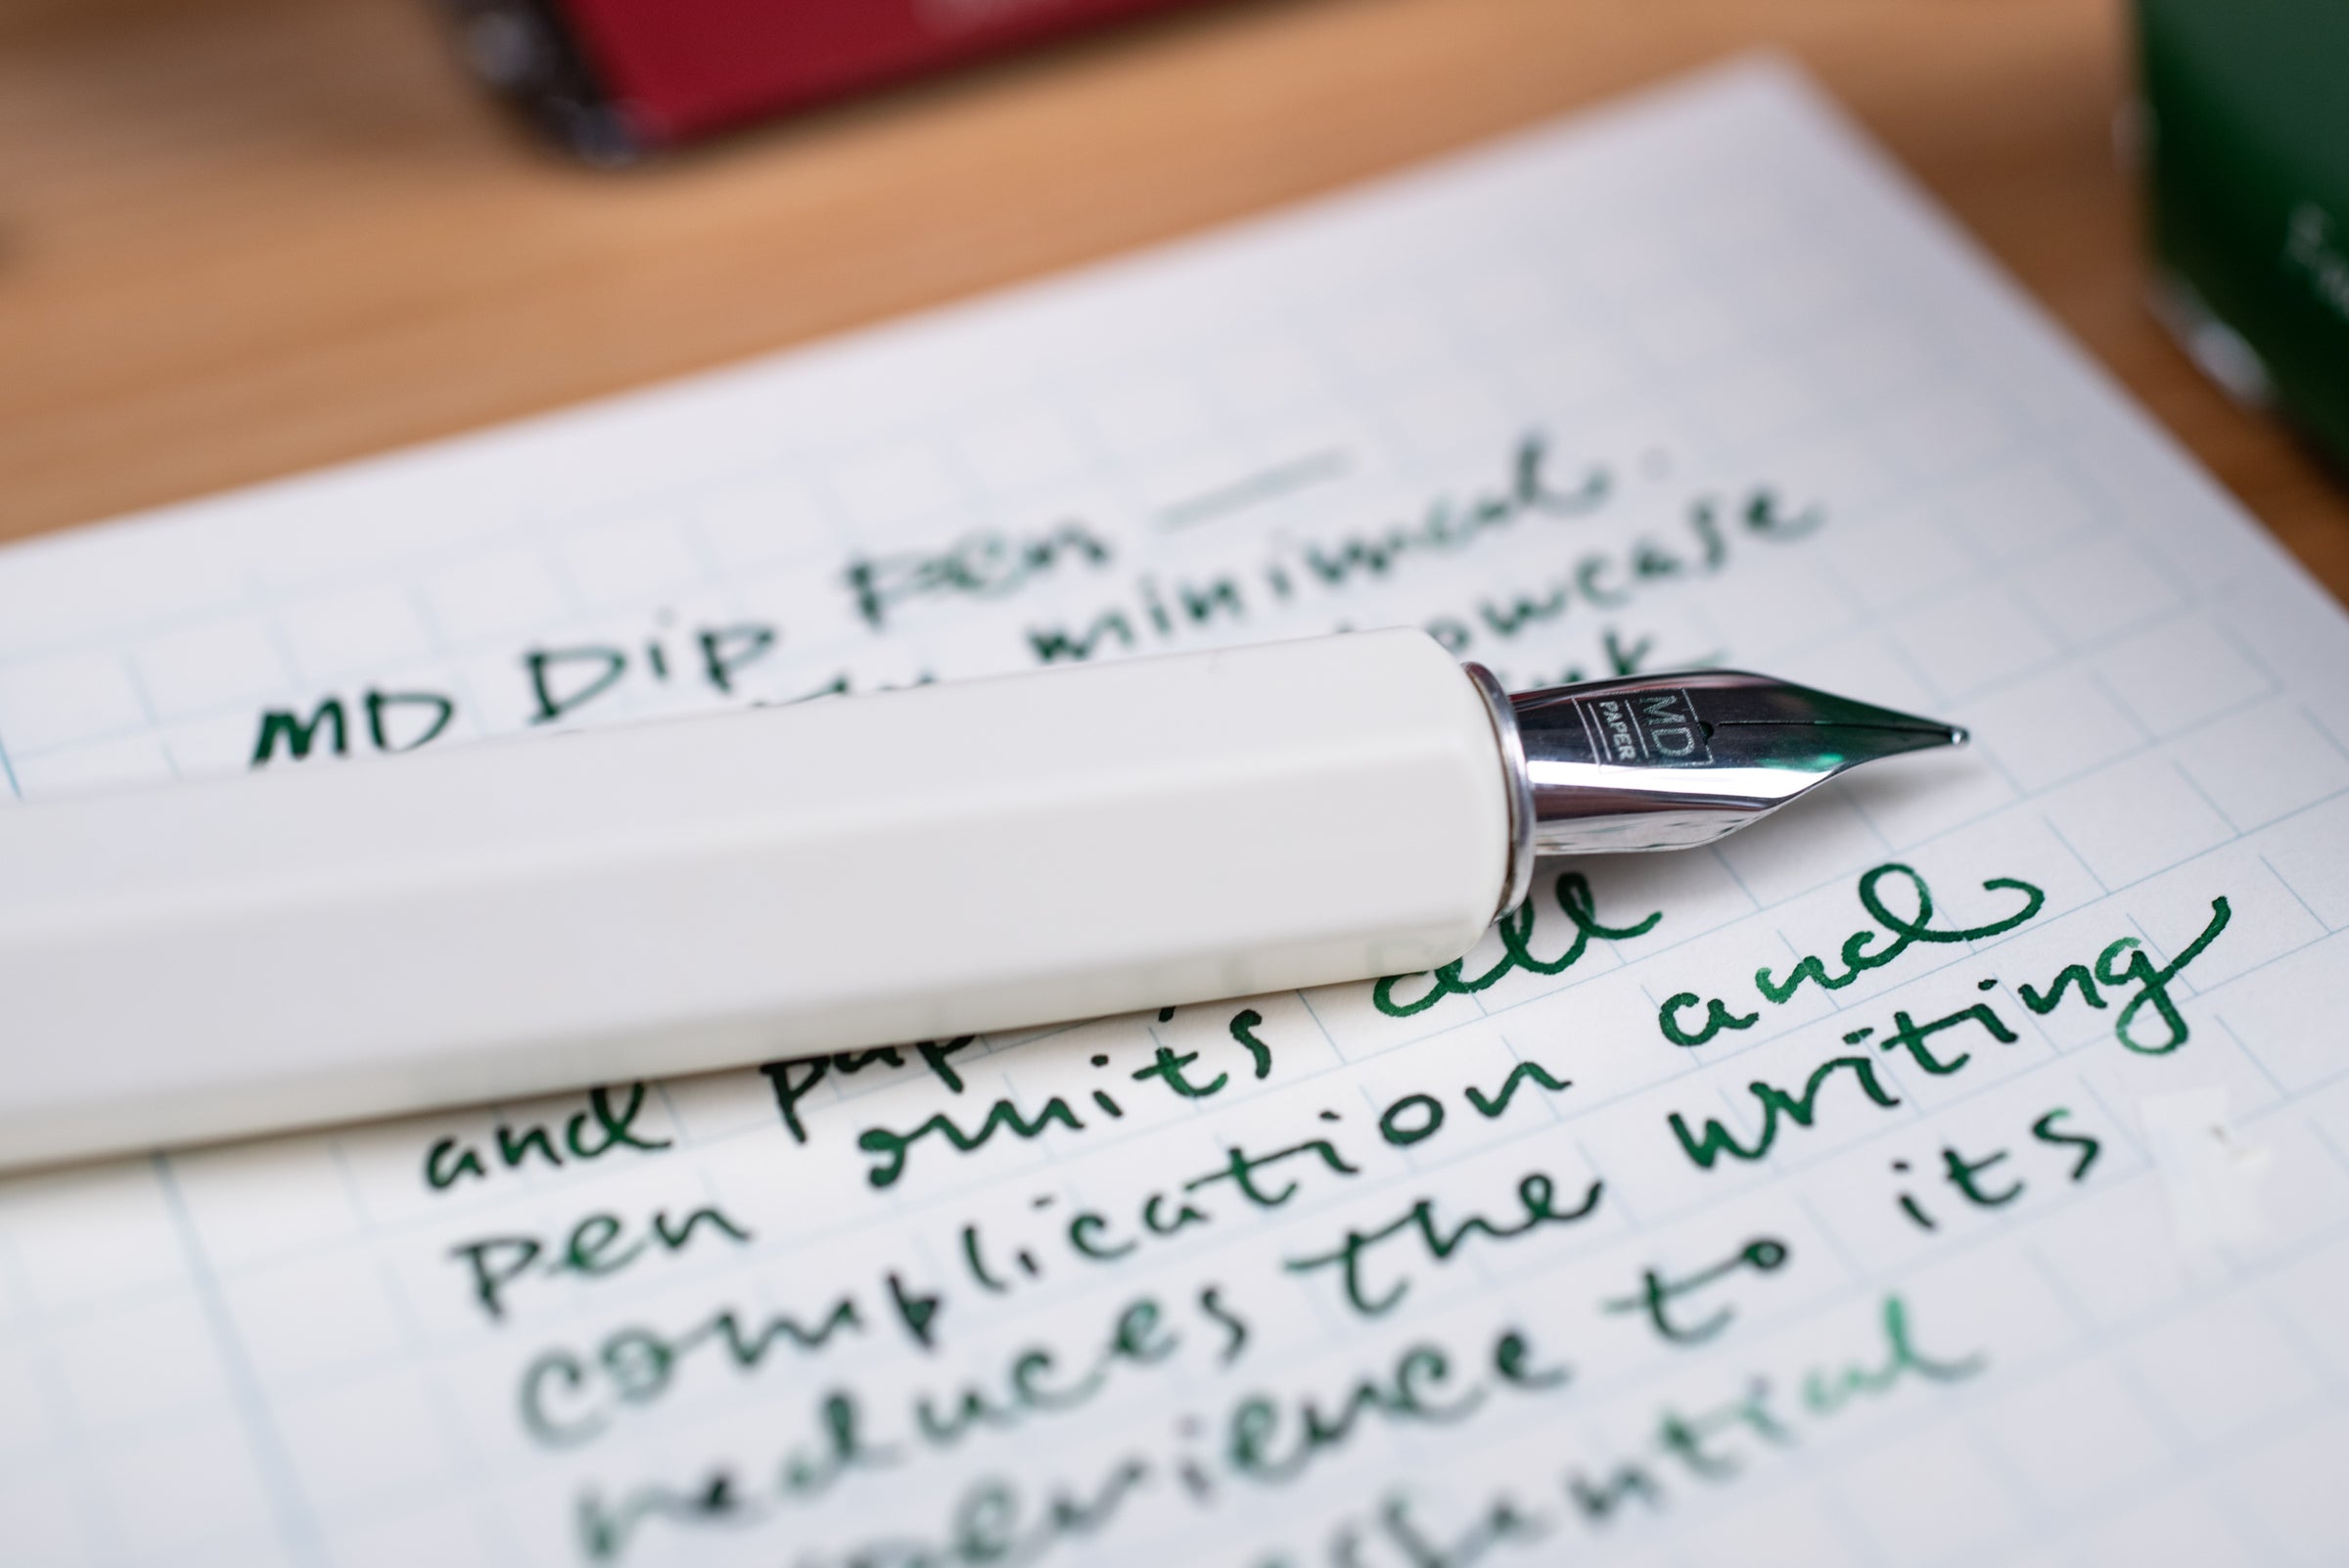 MD Dip Pen —
minimal.
showcase
ink
and
pen omits all
complication and
reduces the writing
experience to its
essantical
MD
PAPER